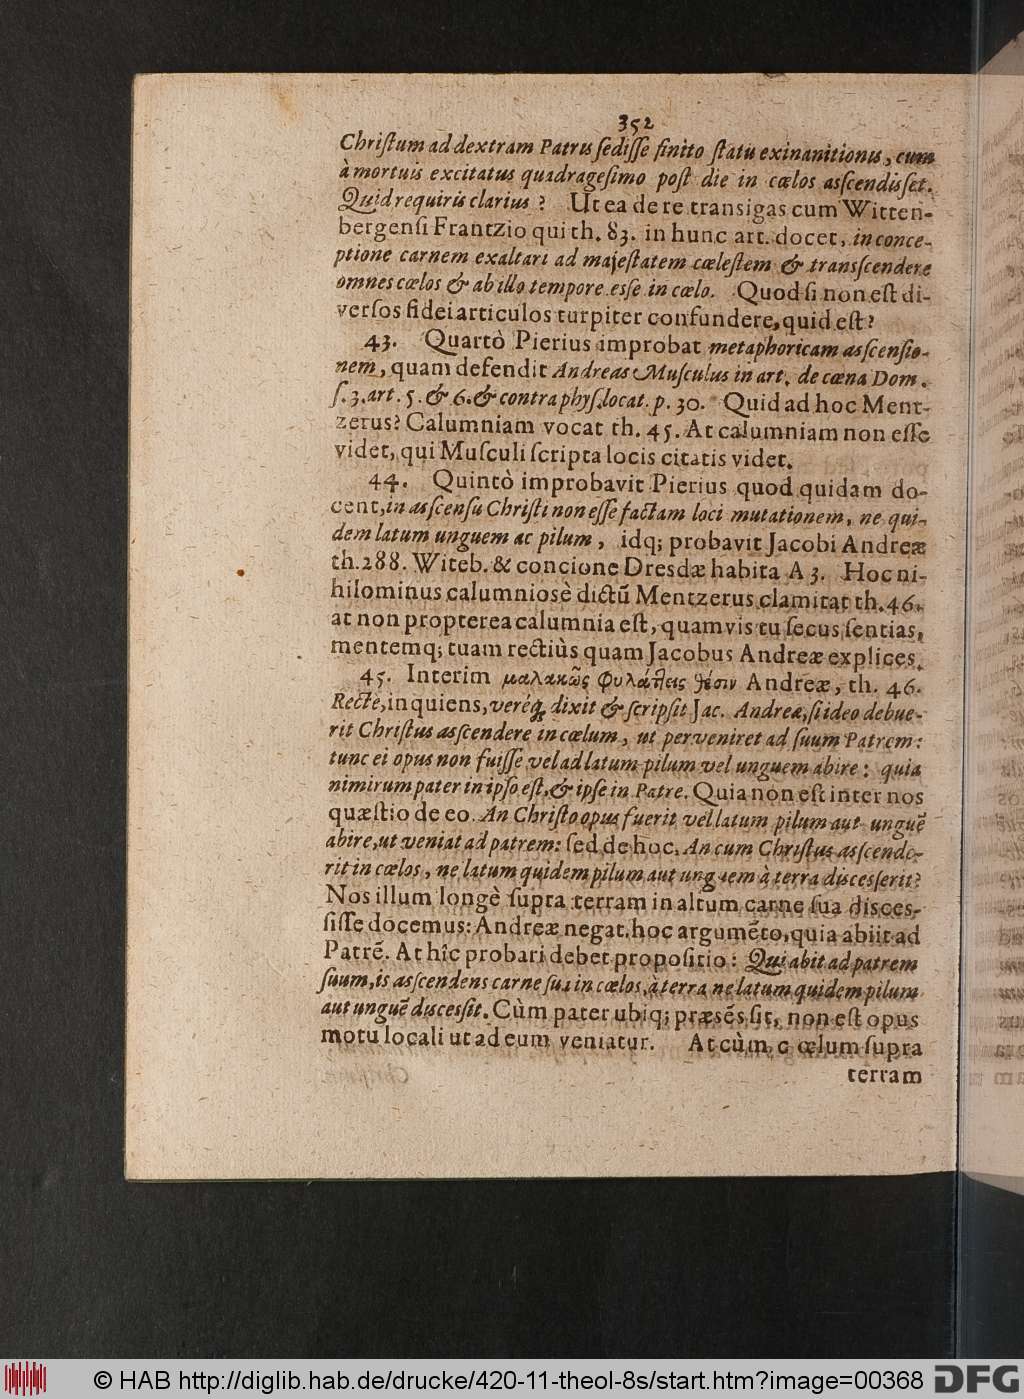 352
Chriſtum ad dextram Patris ſediſſe finito ſtatu exinanitionis, cum
à mortuis excitatus quadrageſimo poſt die in cœlos aſcendiſſet.
Quid requiris clarius? Ut ea de re transigas cum Witten-
bergenſi Frantzio qui th. 83. in hunc art. docet, in conce-
ptione carnem exaltari ad majeſtatem cæleſtem & tranſcendere
omnes cœlos & ab illo tempore eſſe in cælo. Quod ſi non eſt di-
verſos fidei articulos turpiter confundere, quid eſt?
43. Quartò Pierius improbat metaphoricam aſcenſio-
nem, quam defendit Andreas Muſculus in art. de cœna Dom.
ſ. 3. art. 5. & 6. & contra phyſ. locat. p. 30. Quid ad hoc Ment-
zerus? Calumniam vocat th. 45. At calumniam non eſſe
videt, qui Muſculi ſcripta locis citatis videt.
44. Quintò improbavit Pierius quod quidam do-
cent, in aſcenſu Chriſti non eſſe factam loci mutationem, ne qui-
dem latum unguem ac pilum, idq; probavit Jacobi Andreæ
th. 288. Witeb. & concione Dresdæ habita A 3. Hoc ni-
hilominus calumniosè dictũ Mentzerus clamitat th. 46.
at non propterea calumnia eſt, quamvis tu ſecus ſentias,
mentemq; tuam rectiùs quam Jacobus Andreæ explices.
45. Interim μαλακῶς φυλάττεις θέσιν Andreæ, th. 46.
Rectè, inquiens, veréq; dixit & ſcripſit Jac. Andreæ, ſi ideo debue-
rit Chriſtus aſcendere in cælum, ut perveniret ad ſuum Patrem:
tunc ei opus non fuiſſe vel ad latum pilum vel unguem abire: quia
nimirum pater in ipſo eſt, & ipſe in Patre. Quia non eſt inter nos
quæſtio de eo. An Chriſto opus fuerit vel latum pilum aut unguẽ
abire, ut veniat ad patrem: ſed de hoc. An cum Chriſtus aſcende-
rit in cælos, ne latum quidem pilum aut unguem à terra diſceſſerit?
Nos illum longè ſupra terram in altum carne ſua disces-
ſiſſe docemus: Andreæ negat. hoc argumẽto, quia abiit ad
Patrẽ. At hîc probari debet propoſitio: Qui abit ad patrem
ſuum, is aſcendens carne ſua in cœlos, à terra ne latum quidem pilum
aut unguẽ diſceſſit. Cùm pater ubiq; præsẽs ſit, non eſt opus
motu locali ut ad eum veniatur. At cùm c œlum ſupra
terram
© HAB http://diglib.hab.de/drucke/420-11-theol-8s/start.htm?image=00368
DFG